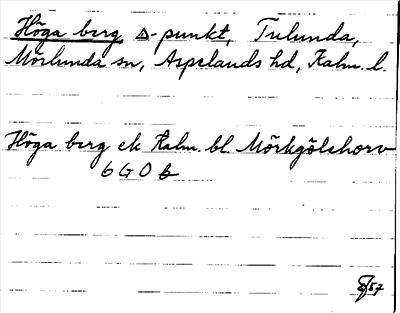 Höga berg, △-punkt, Tulunda,
Mörlunda sn, Aspelands hd, Kalm. l.
Höga berg ek Kalm. bl. Mörkgölshorv
6 G 0 b
57